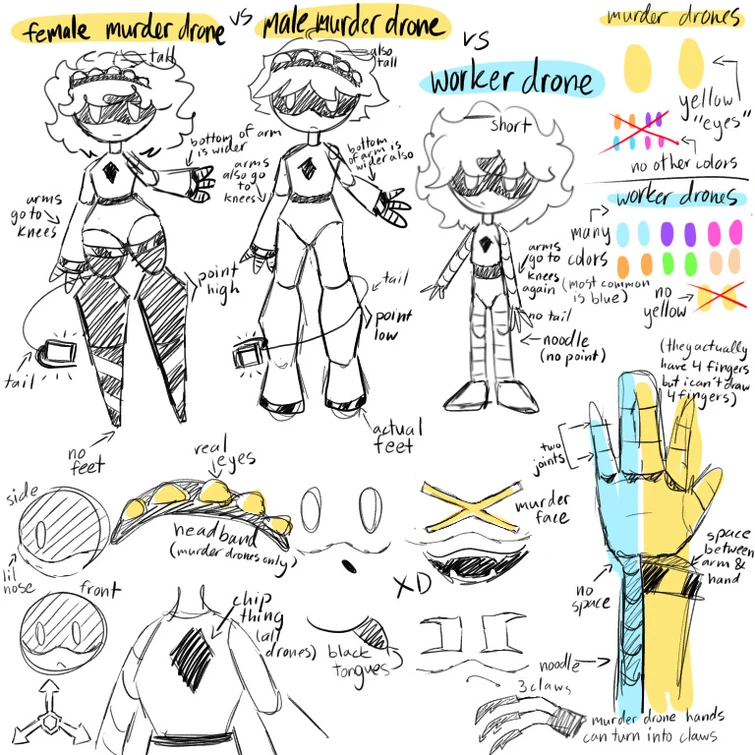 female murder drone
vs
male murder drone
vs
worker drone
murder drones
tall
also
tall
short
bottom of arm
is wider
bottom
of arm is
wider also
arms
go to
knees
arms
also go
to
knees
point
high
tail
tail
point
low
no
feet
actual
feet
arms
go to
knees
again
no tail
noodle
(no point)
yellow
"eyes"
no other colors
worker drones
many
colors
(most common
is blue)
no
yellow
(they actually
have 4 fingers
but i can't draw
4 fingers)
two
joints
space
between
arm &
hand
no
space
noodle
murder drone hands
can turn into claws
side
lil
nose
front
real
eyes
headband
(murder drones only)
chip
thing
(all
drones)
murder
face
XD
black
tongues
3 claws